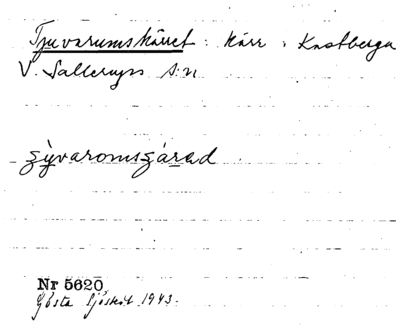 Tjuvarumskärret: Kärr i Kastberga
V. Sallerups s:n
şy̌varomsşárad
Nr 5620
Gösta Sjöstedt 1943.